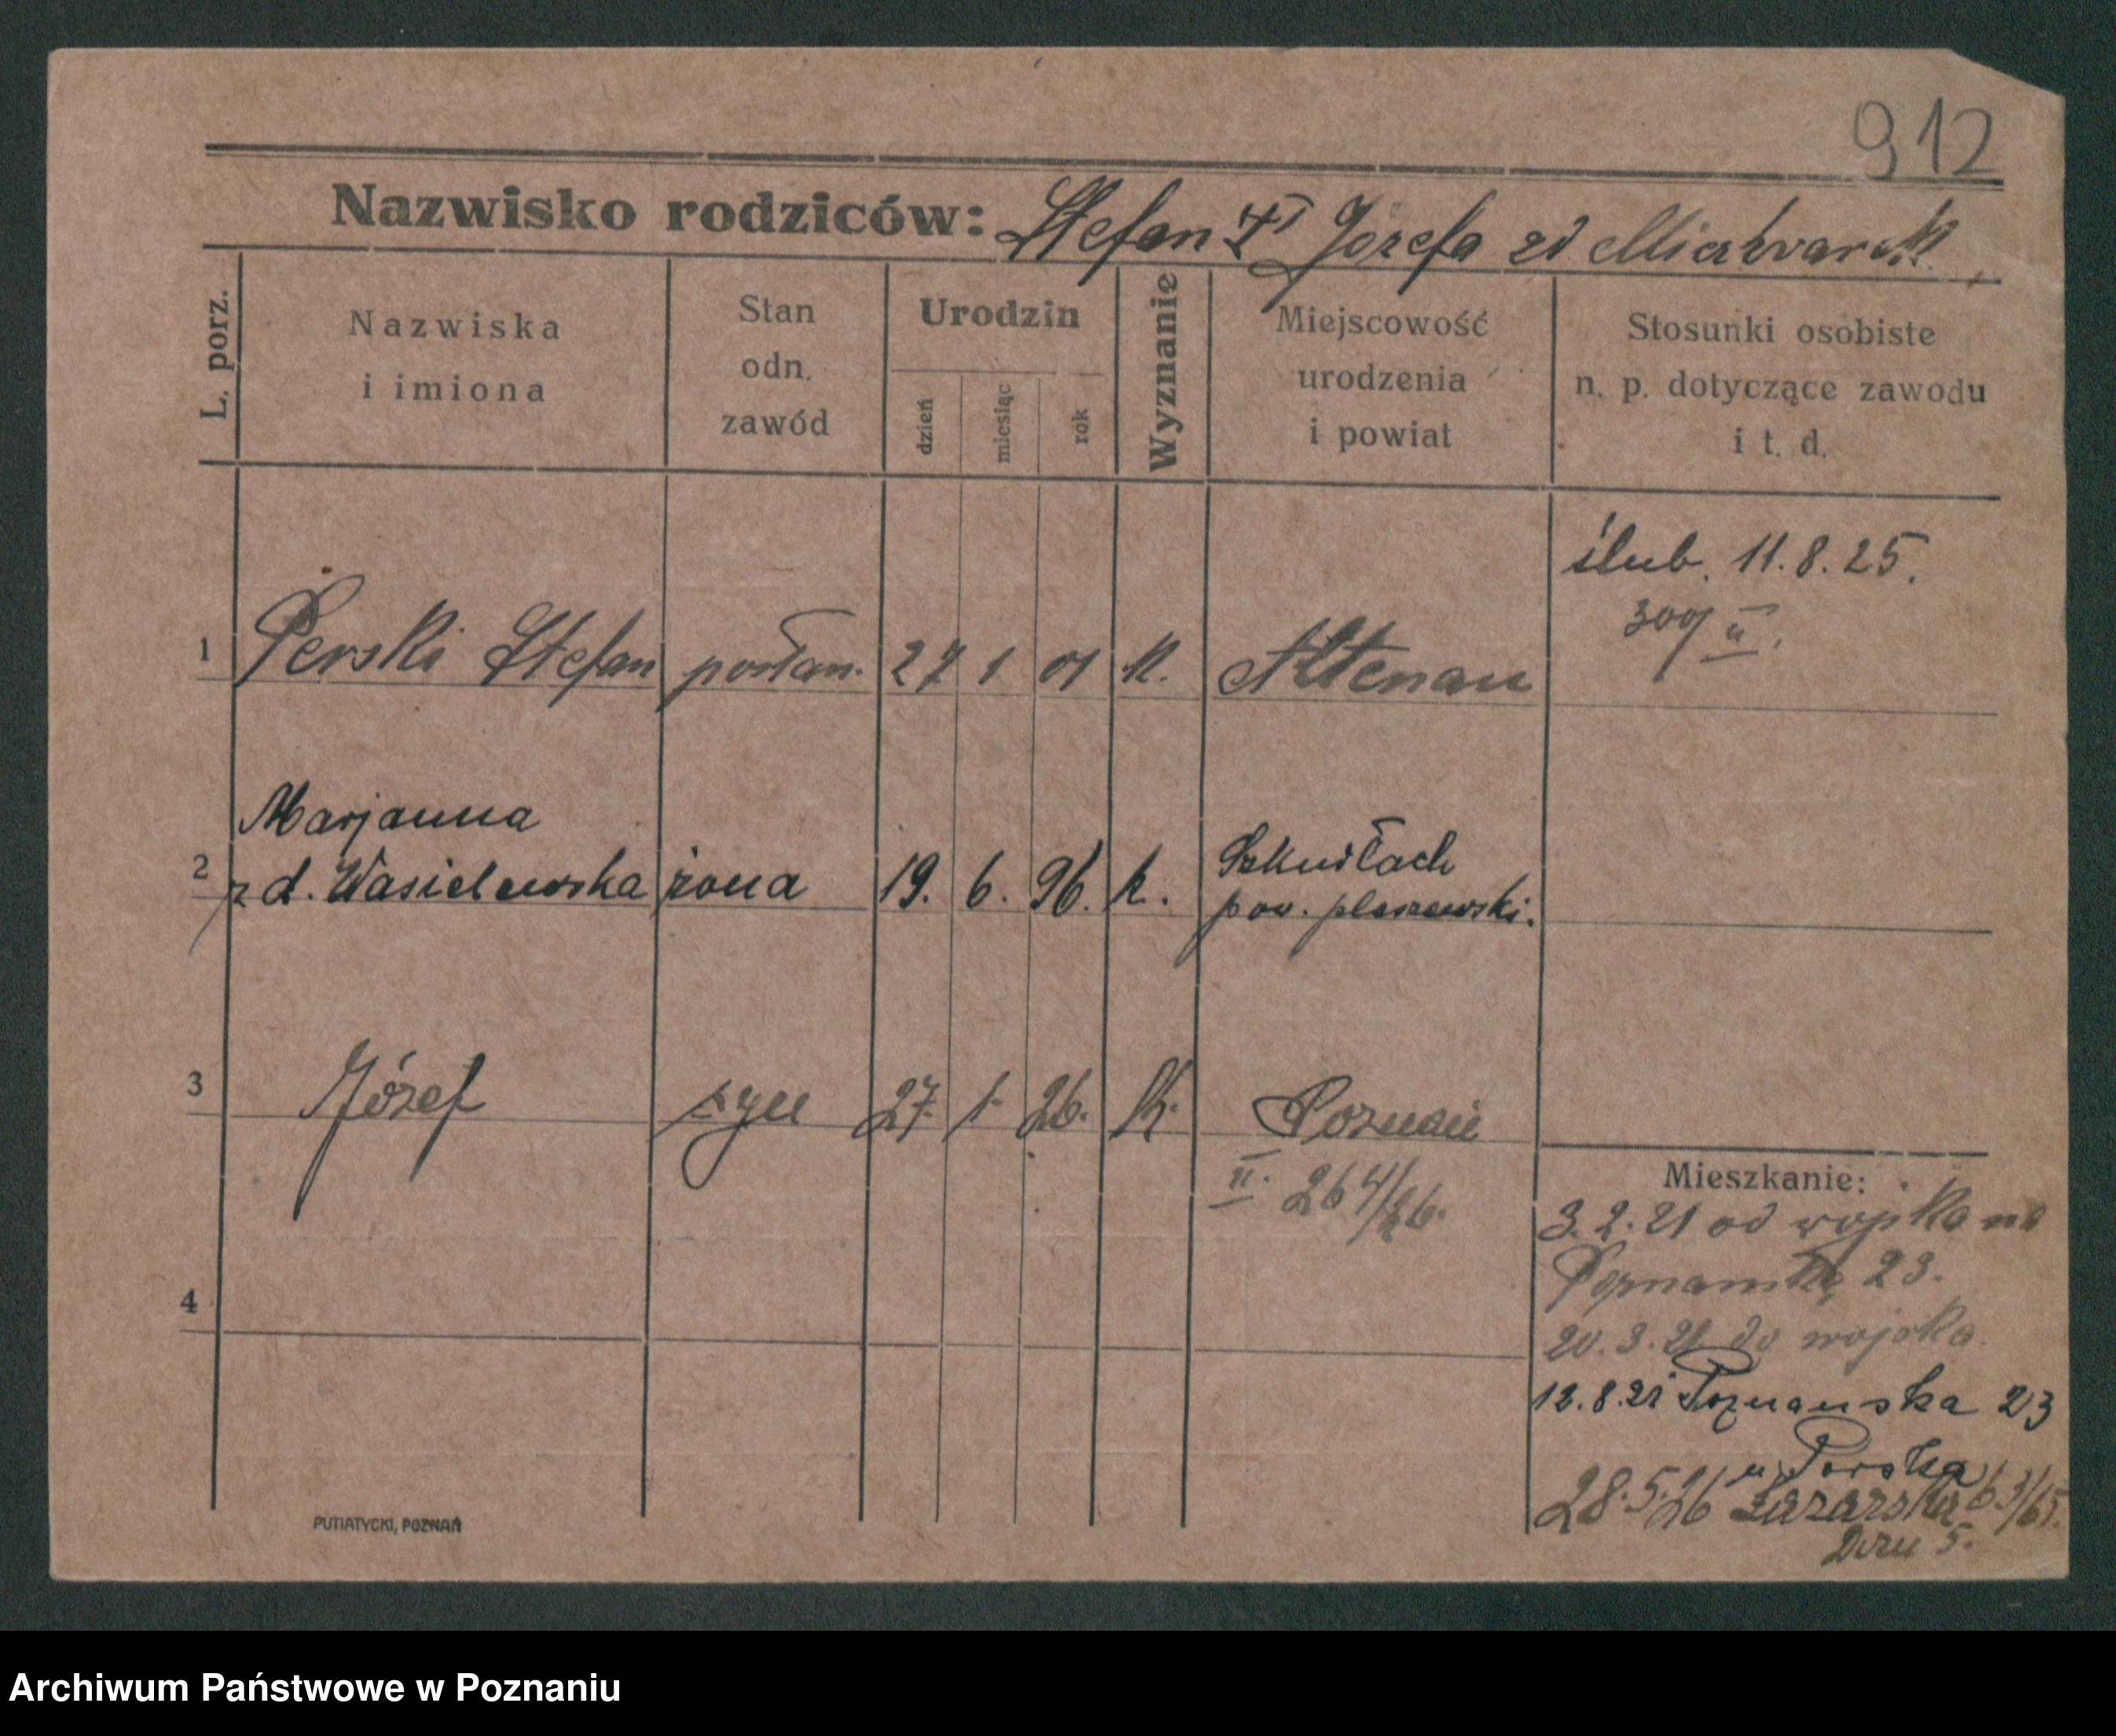 912
Nazwisko rodziców: Stefan Józefa zd
L. porz.
Nazwiska
i imiona
Stan
odn.
zawód
Urodzin
dzień
miesiąc
rok
Wyznanie
Miejscowość
urodzenia
i powiat
Stosunki osobiste
n. p. dotyczące zawodu
i t. d.
ślub. 11.8.25.
II
1 Perski Stefan posłan. 27 1 01 K. Altenau
Marjanna
2 zd. Wasielewska żona 19. 6. 96. k. Szkudłach
pow. pleszewski.
3 Józef syn 27. 1. 26. K. Poznań
II. 264/26.
4
Mieszkanie:
3.2.21 od wojska na
23.
20.3.21 do wojska
12.8.21 Poznanska 23
u Perska
28.5.26 Łazarska 63/65.
Dom 5.
PUTIATYCKI, POZNAŃ
Archiwum Państwowe w Poznaniu